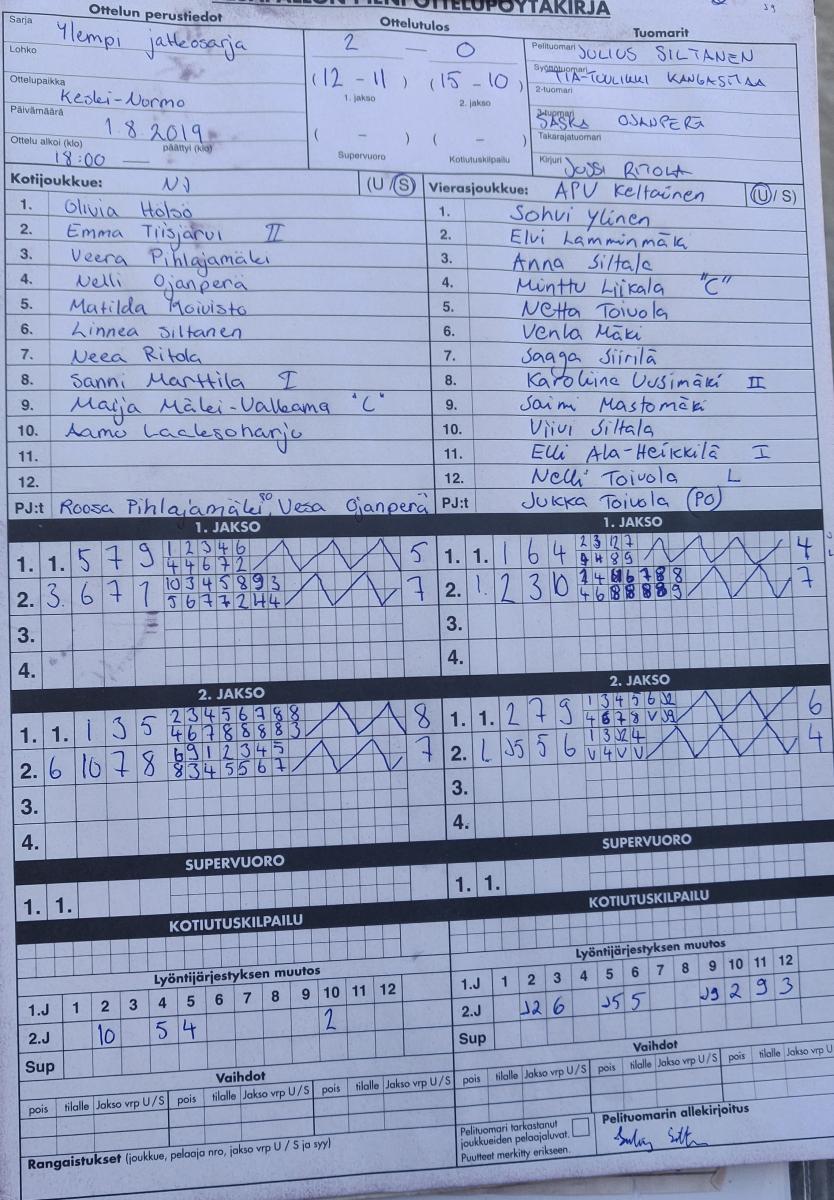 PESÄPALLON PIENI OTTELUPÖYTÄKIRJA
Ottelun perustiedot
Sarja Ylempi jatkosarja
Lohko
Ottelupaikka Koski-Nurmo
Päivämäärä 1.8.2019
Ottelu alkoi (klo) 18:00 päättyi (klo)
Ottelutulos
2 – 0
(12 - 11) (15 - 10)
1. jakso 2. jakso
( - ) ( - )
Supervuoro Kotiutuskilpailu
Tuomarit
Pelituomari JULIUS SILTANEN
Syöttötuomari TIA-TUULIKKI KANGASMAA
2-tuomari
3-tuomari SASKA OJANPERÄ
Takarajatuomari
Kirjuri JUSSI RITOLA
Kotijoukkue: NJ (U / S)
1. Olivia Holsö
2. Emma Tiisjärvi II
3. Veera Pihlajamäki
4. Nelli Ojanperä
5. Matilda Koivisto
6. Linnea Siltanen
7. Neea Ritola
8. Sanni Marttila I
9. Maija Mäki-Valkama "C"
10. Aamo Laaksoharju
11.
12.
PJ:t Roosa Pihlajamäki, Vesa Ojanperä
Vierasjoukkue: APV Keltainen (U / S)
1. Sohvi Ylinen
2. Elvi Lamminmäki
3. Anna Siltala
4. Minttu Liikala "C"
5. Netta Toivola
6. Venla Mäki
7. Saaga Siirilä
8. Karoliina Uusimäki II
9. Saimi Mastomäki
10. Viivi Siltala
11. Elli Ala-Heikkilä I
12. Nelli Toivola L
PJ:t JUKKA TOIVOLA (PO)
1. JAKSO
1. 1. 5 7 9 1 2 3 4 6 5
4 4 6 7 2
2. 3. 6 7 1 10 3 4 5 8 9 3 7
5 6 7 7 2 4 4
3.
4.
1. JAKSO
1. 1. 1 6 4 2 3 12 7 4
9 4 8 9
2. 1. 2 3 10 7
3.
4.
2. JAKSO
1. 1. 1 3 5 2 3 4 5 6 7 8 8 8
4 6 7 8 8 8 8 3
2. 6 10 7 8 6 9 1 2 3 4 5 7
8 3 4 5 5 6 7
3.
4.
2. JAKSO
1. 1. 2 7 9 1 3 4 5 6 J2 6
4 6 7 8 V J9
2. L J5 5 6 1 3 J2 4 4
V 4 V V
3.
4.
SUPERVUORO
1. 1.
SUPERVUORO
1. 1.
KOTIUTUSKILPAILU
KOTIUTUSKILPAILU
Lyöntijärjestyksen muutos
1.J 1 2 3 4 5 6 7 8 9 10 11 12
2.J 10 5 4 2
Sup
Lyöntijärjestyksen muutos
1.J 1 2 3 4 5 6 7 8 9 10 11 12
2.J J2 6 J5 5 J9 2 9 3
Sup
Vaihdot
pois tilalle Jakso vrp U / S pois tilalle Jakso vrp U / S pois tilalle Jakso vrp U / S
Vaihdot
pois tilalle Jakso vrp U / S pois tilalle Jakso vrp U / S pois tilalle Jakso vrp U
Rangaistukset (joukkue, pelaaja nro, jakso vrp U / S ja syy)
Pelituomari tarkastanut
joukkueiden pelaajaluvat.
Puutteet merkitty erikseen.
Pelituomarin allekirjoitus